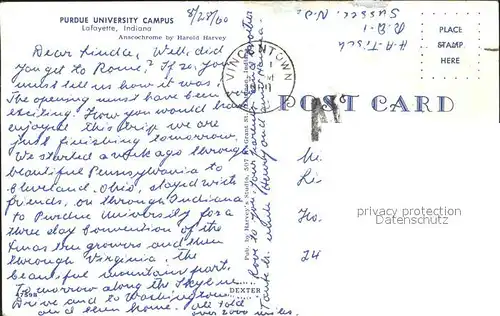 PURDUE UNIVERSITY CAMPUS
Lafayette, Indiana
Anscochrome by Harold Harvey
8/28/60
Dear Linda, Well, did
you get to Rome? If so, you
must tell us how it was.
The opening must have been
exciting. How you would have
enjoyed this trip we are
just finishing tomorrow.
We started a week ago through
beautiful Pennsylvania to
Cleveland, Ohio, stayed with
friends, on through Indiana
to Purdue University for a
three day Convention of the
Xmas tree growers and then
through Virginia, the
beautiful mountain part.
Tomorrow along the Skyline
Drive and to Washington
and then home. All told
over 2000 miles.
Love to you, your parents and
while Henry and
47598
DEXTER
Pub. by Harvey's Studio, 507 N. Grant St.
VINCENTOWN
POST CARD
H-A-Tisch
R.D.1-
Sussex N.J.
PLACE
STAMP
HERE
M.
Li
Ho.
24
privacy protection
Datenschutz